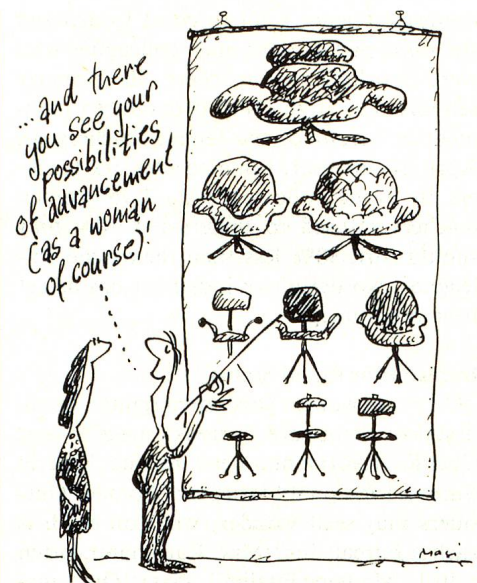 ...and there
you see your
possibilities
of advancement
(as a woman
of course)!
Masi